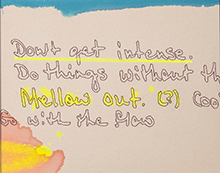 Don't get intense.
Do things without th
Mellow out. (?) Coo
Go with the flow